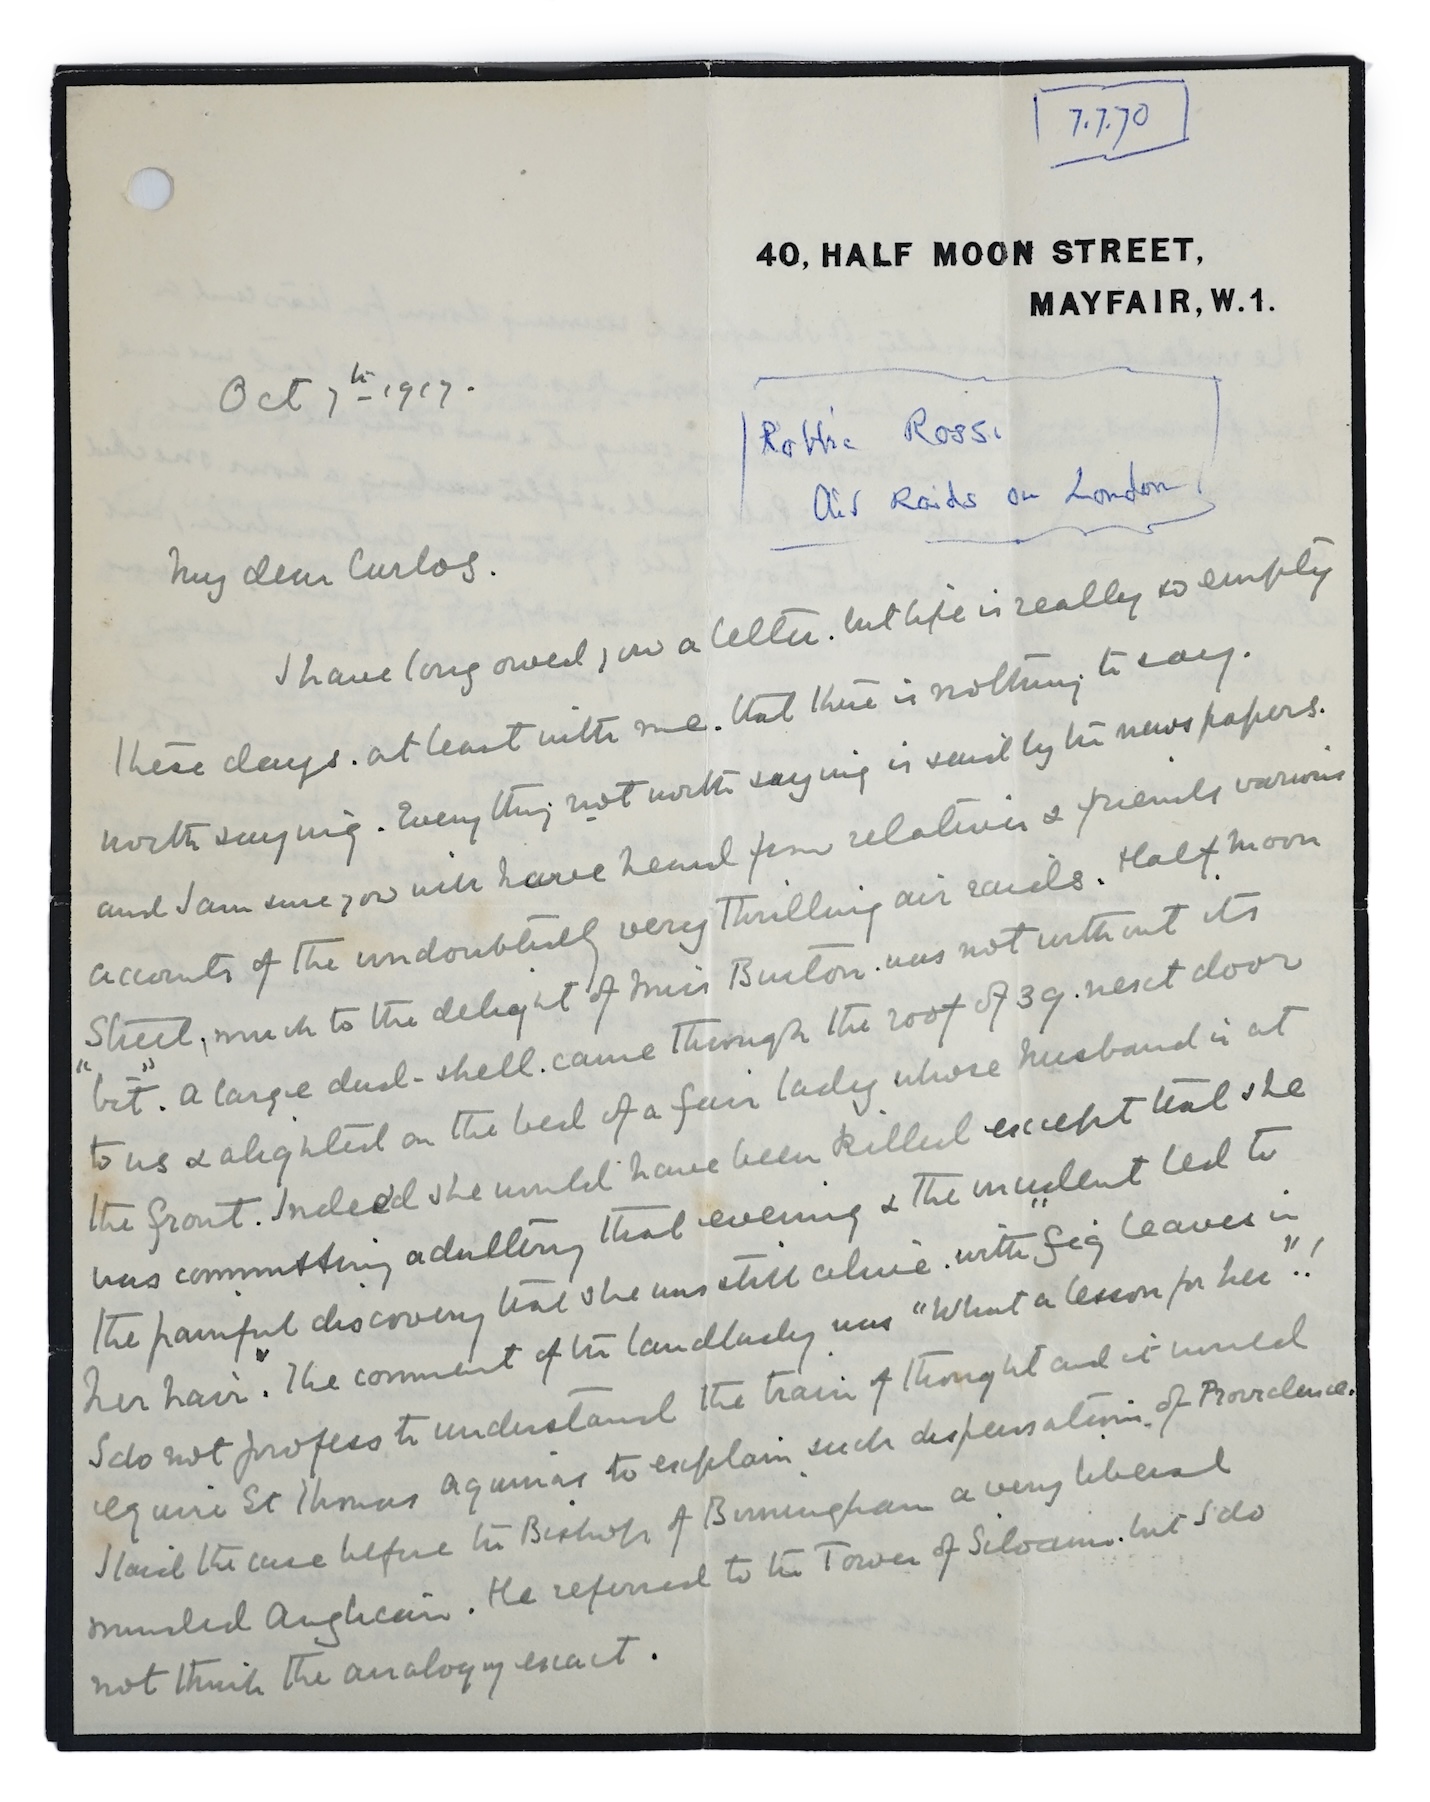 7.7.70
40, HALF MOON STREET,
MAYFAIR, W.1.
Oct 7th 1917.
Robbie Ross.
Air Raids on London
My dear Carlos.
I have long owed you a letter. but life is really so empty
these days. at least with me. that there is nothing to say.
worth saying. Everything not worth saying is said by the newspapers.
and I am sure you will have heard from relatives & friends various
accounts of the undoubtedly very thrilling air raids. Half Moon
Street, much to the delight of Miss Burton. was not without its
"bit". A large dud-shell. came through the roof of 39. next door
to us & alighted on the bed of a fair lady whose husband is at
the front. Indeed she would have been killed except that she
was committing adultery that evening & the incident led to
the painful discovery that she was still alive. with "fig leaves in
her hair". The comment of the landlady was "What a lesson for her"!!
I do not profess to understand the train of thought and it would
require St Thomas Aquinas to explain such dispensations of Providence.
I laid the case before the Bishop of Birmingham a very liberal
minded Anglican. He referred to the Tower of Siloam. but I do
not think the analogy exact.